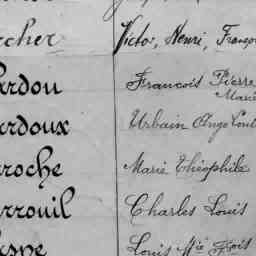 rcher Victor, Henri, Franço
ardou François Pierre
Marie
ardoux Urbain Ange Cont
aroche Marie Théophile
arrouil Charles Louis
espe Louis Mie Frois